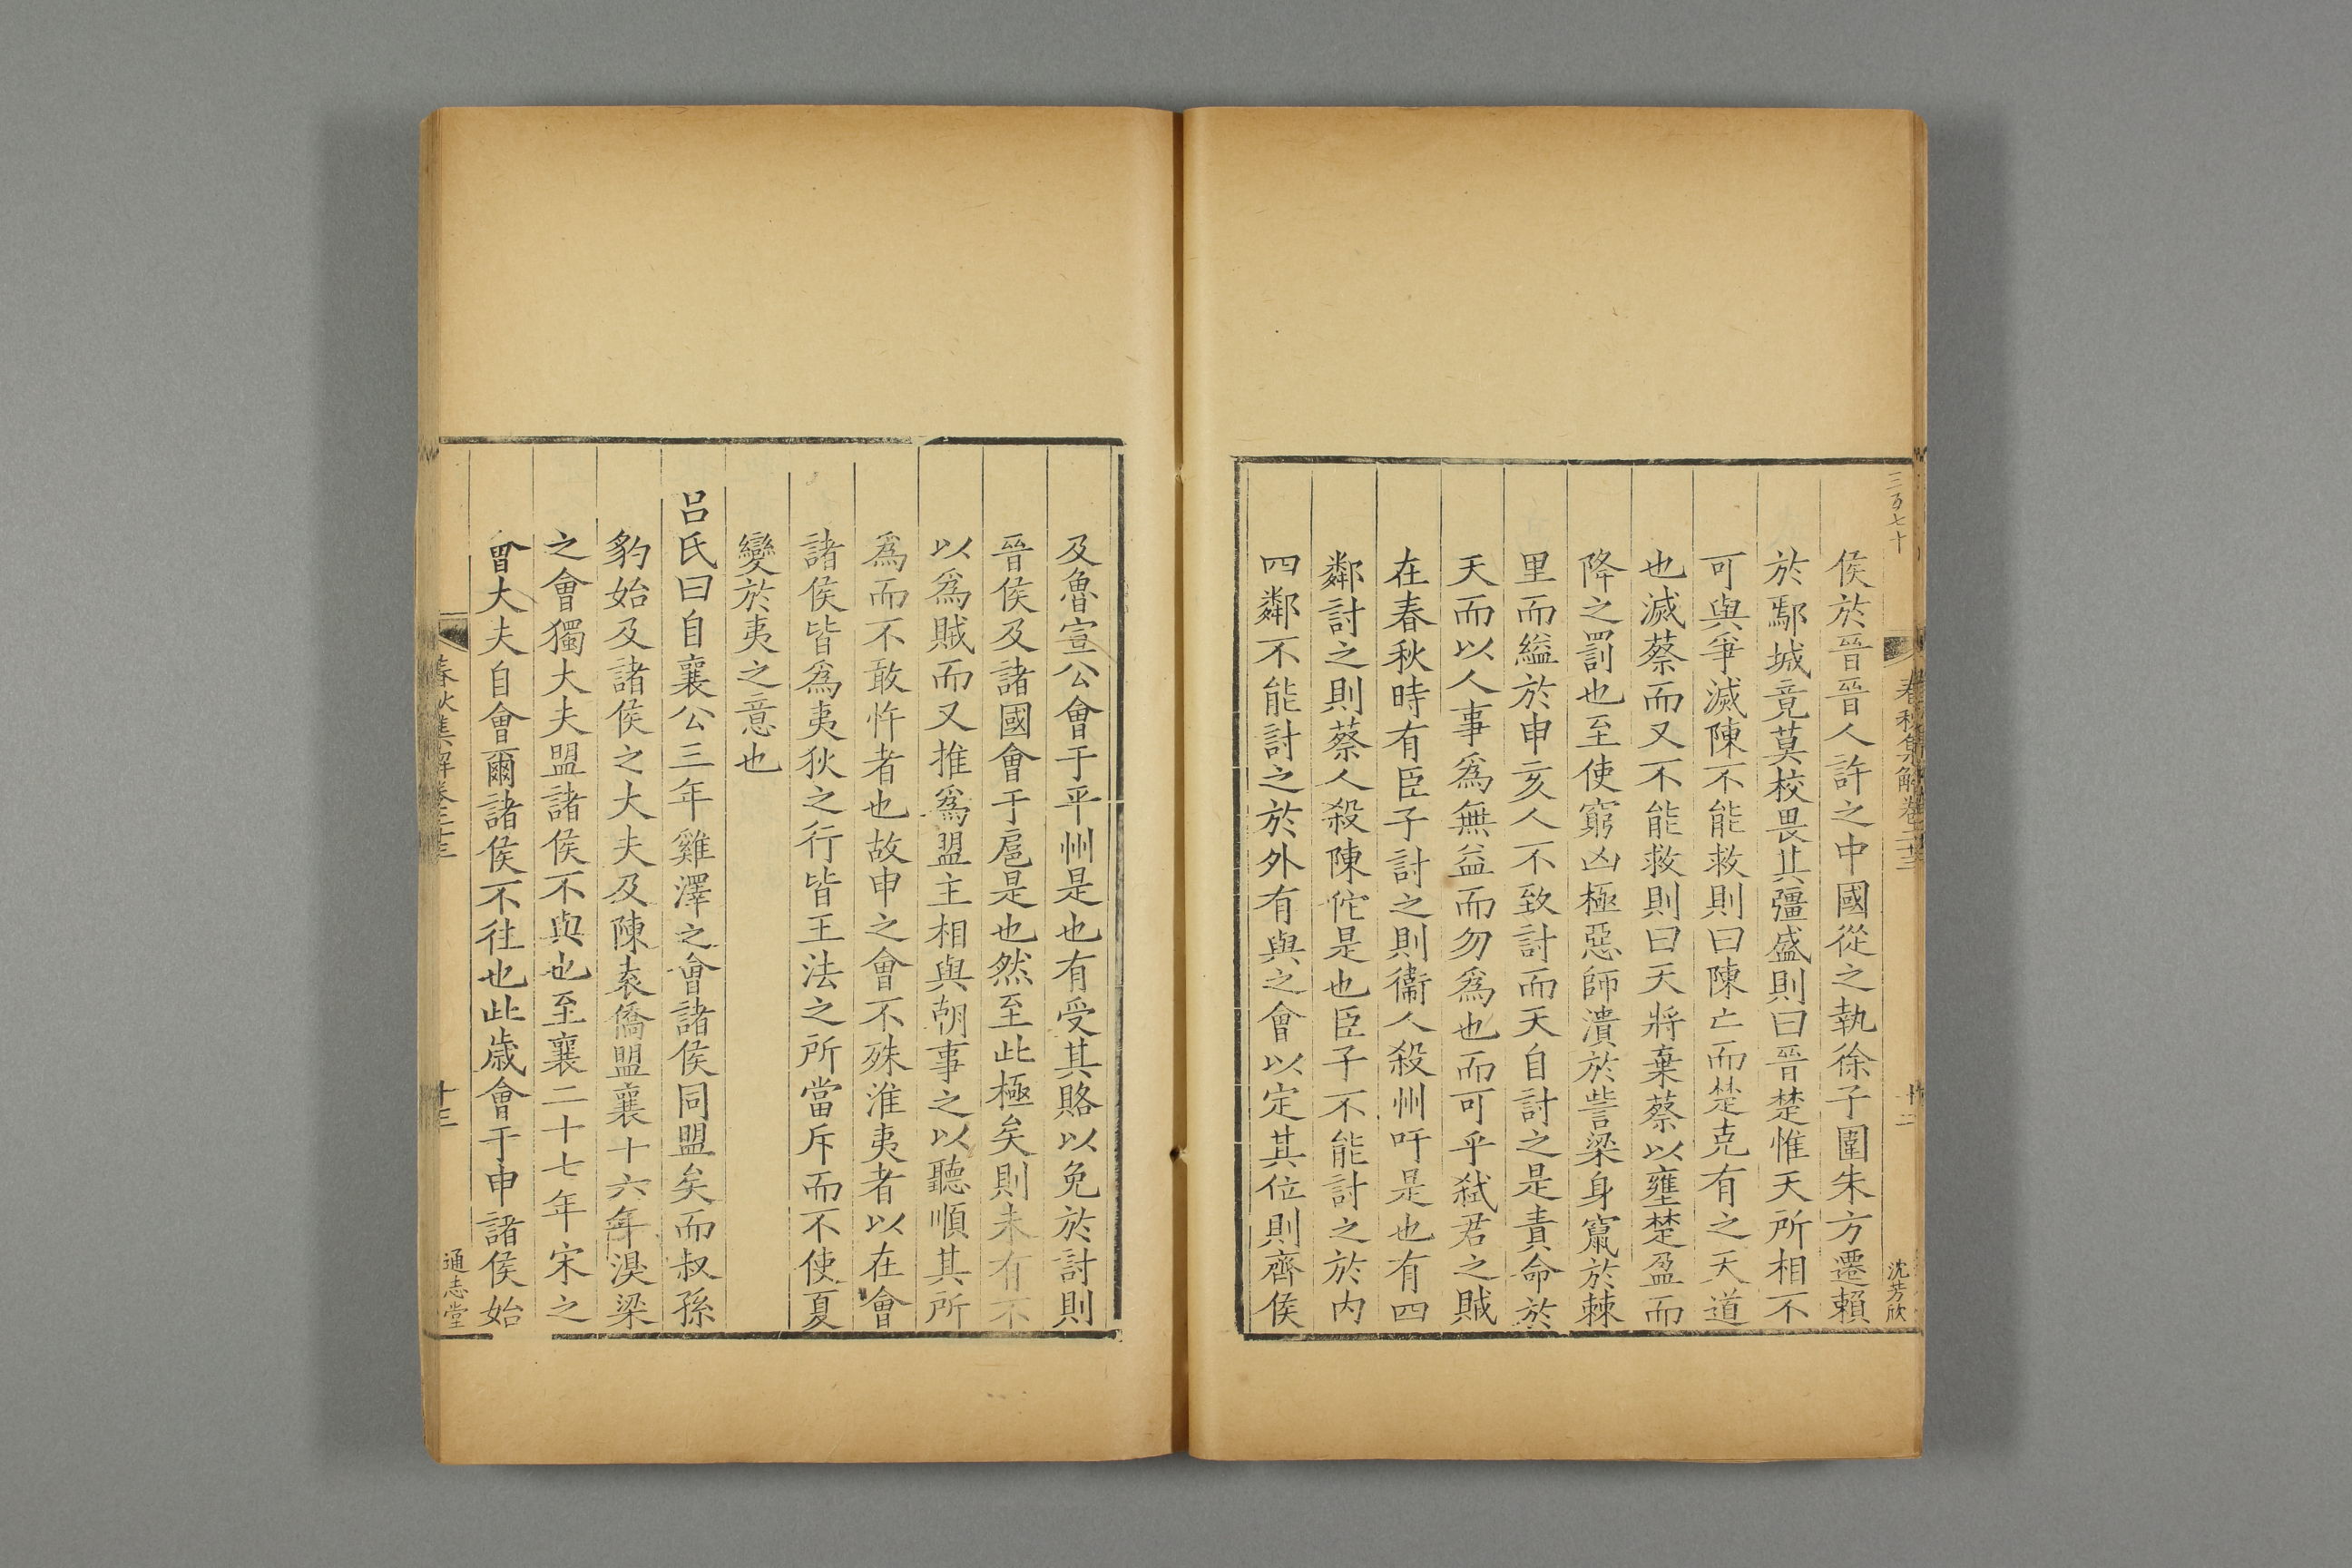 三百七十
春秋集解卷二十三
十二
沈芳欣
侯於晉晉人許之中國從之執徐子圍朱方遷賴
於鄢城竟莫校畏其彊盛則曰晉楚惟天所相不
可與爭滅陳不能救則曰陳亡而楚克有之天道
也滅蔡而又不能救則曰天將棄蔡以壅楚盈而
降之罰也至使窮凶極惡師潰於訾梁身竄於棘
里而縊於申亥人不致討而天自討之是責命於
天而以人事爲無益而勿爲也而可乎弒君之賊
在春秋時有臣子討之則衞人殺州吁是也有四
鄰討之則蔡人殺陳佗是也臣子不能討之於內
四鄰不能討之於外有與之會以定其位則齊侯
及魯宣公會于平州是也有受其賂以免於討則
晉侯及諸國會于扈是也然至此極矣則未有不
以爲賊而又推爲盟主相與朝事之以聽順其所
爲而不敢忤者也故申之會不殊淮夷者以在會
諸侯皆爲夷狄之行皆王法之所當斥而不使夏
變於夷之意也
呂氏曰自襄公三年雞澤之會諸侯同盟矣而叔孫
豹始及諸侯之大夫及陳袁僑盟襄十六年溴梁
之會獨大夫盟諸侯不與也至襄二十七年宋之
會大夫自會爾諸侯不往也此歲會于申諸侯始
春秋集解卷二十三
十三
通志堂